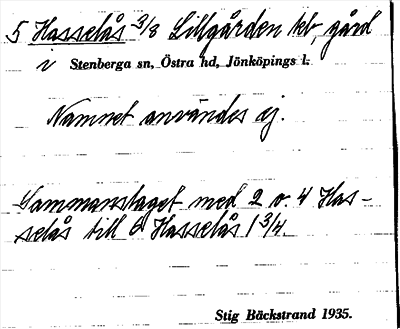 5 Hasselås 3/8 Lillgården kb, gård
i Stenberga sn, Östra hd, Jönköpings l.
Namnet användes ej.
Sammanslaget med 2 o. 4 Has-
selås till 6 Hasselås 1 3/4.
Stig Bäckstrand 1935.